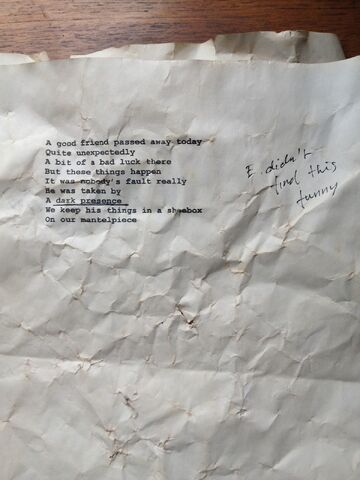 A good friend passed away today
Quite unexpectedly
A bit of a bad luck there
But these things happen
It was nobody's fault really
He was taken by
A dark presence
We keep his things in a shoebox
On our mantelpiece
E. didn't
find this
funny